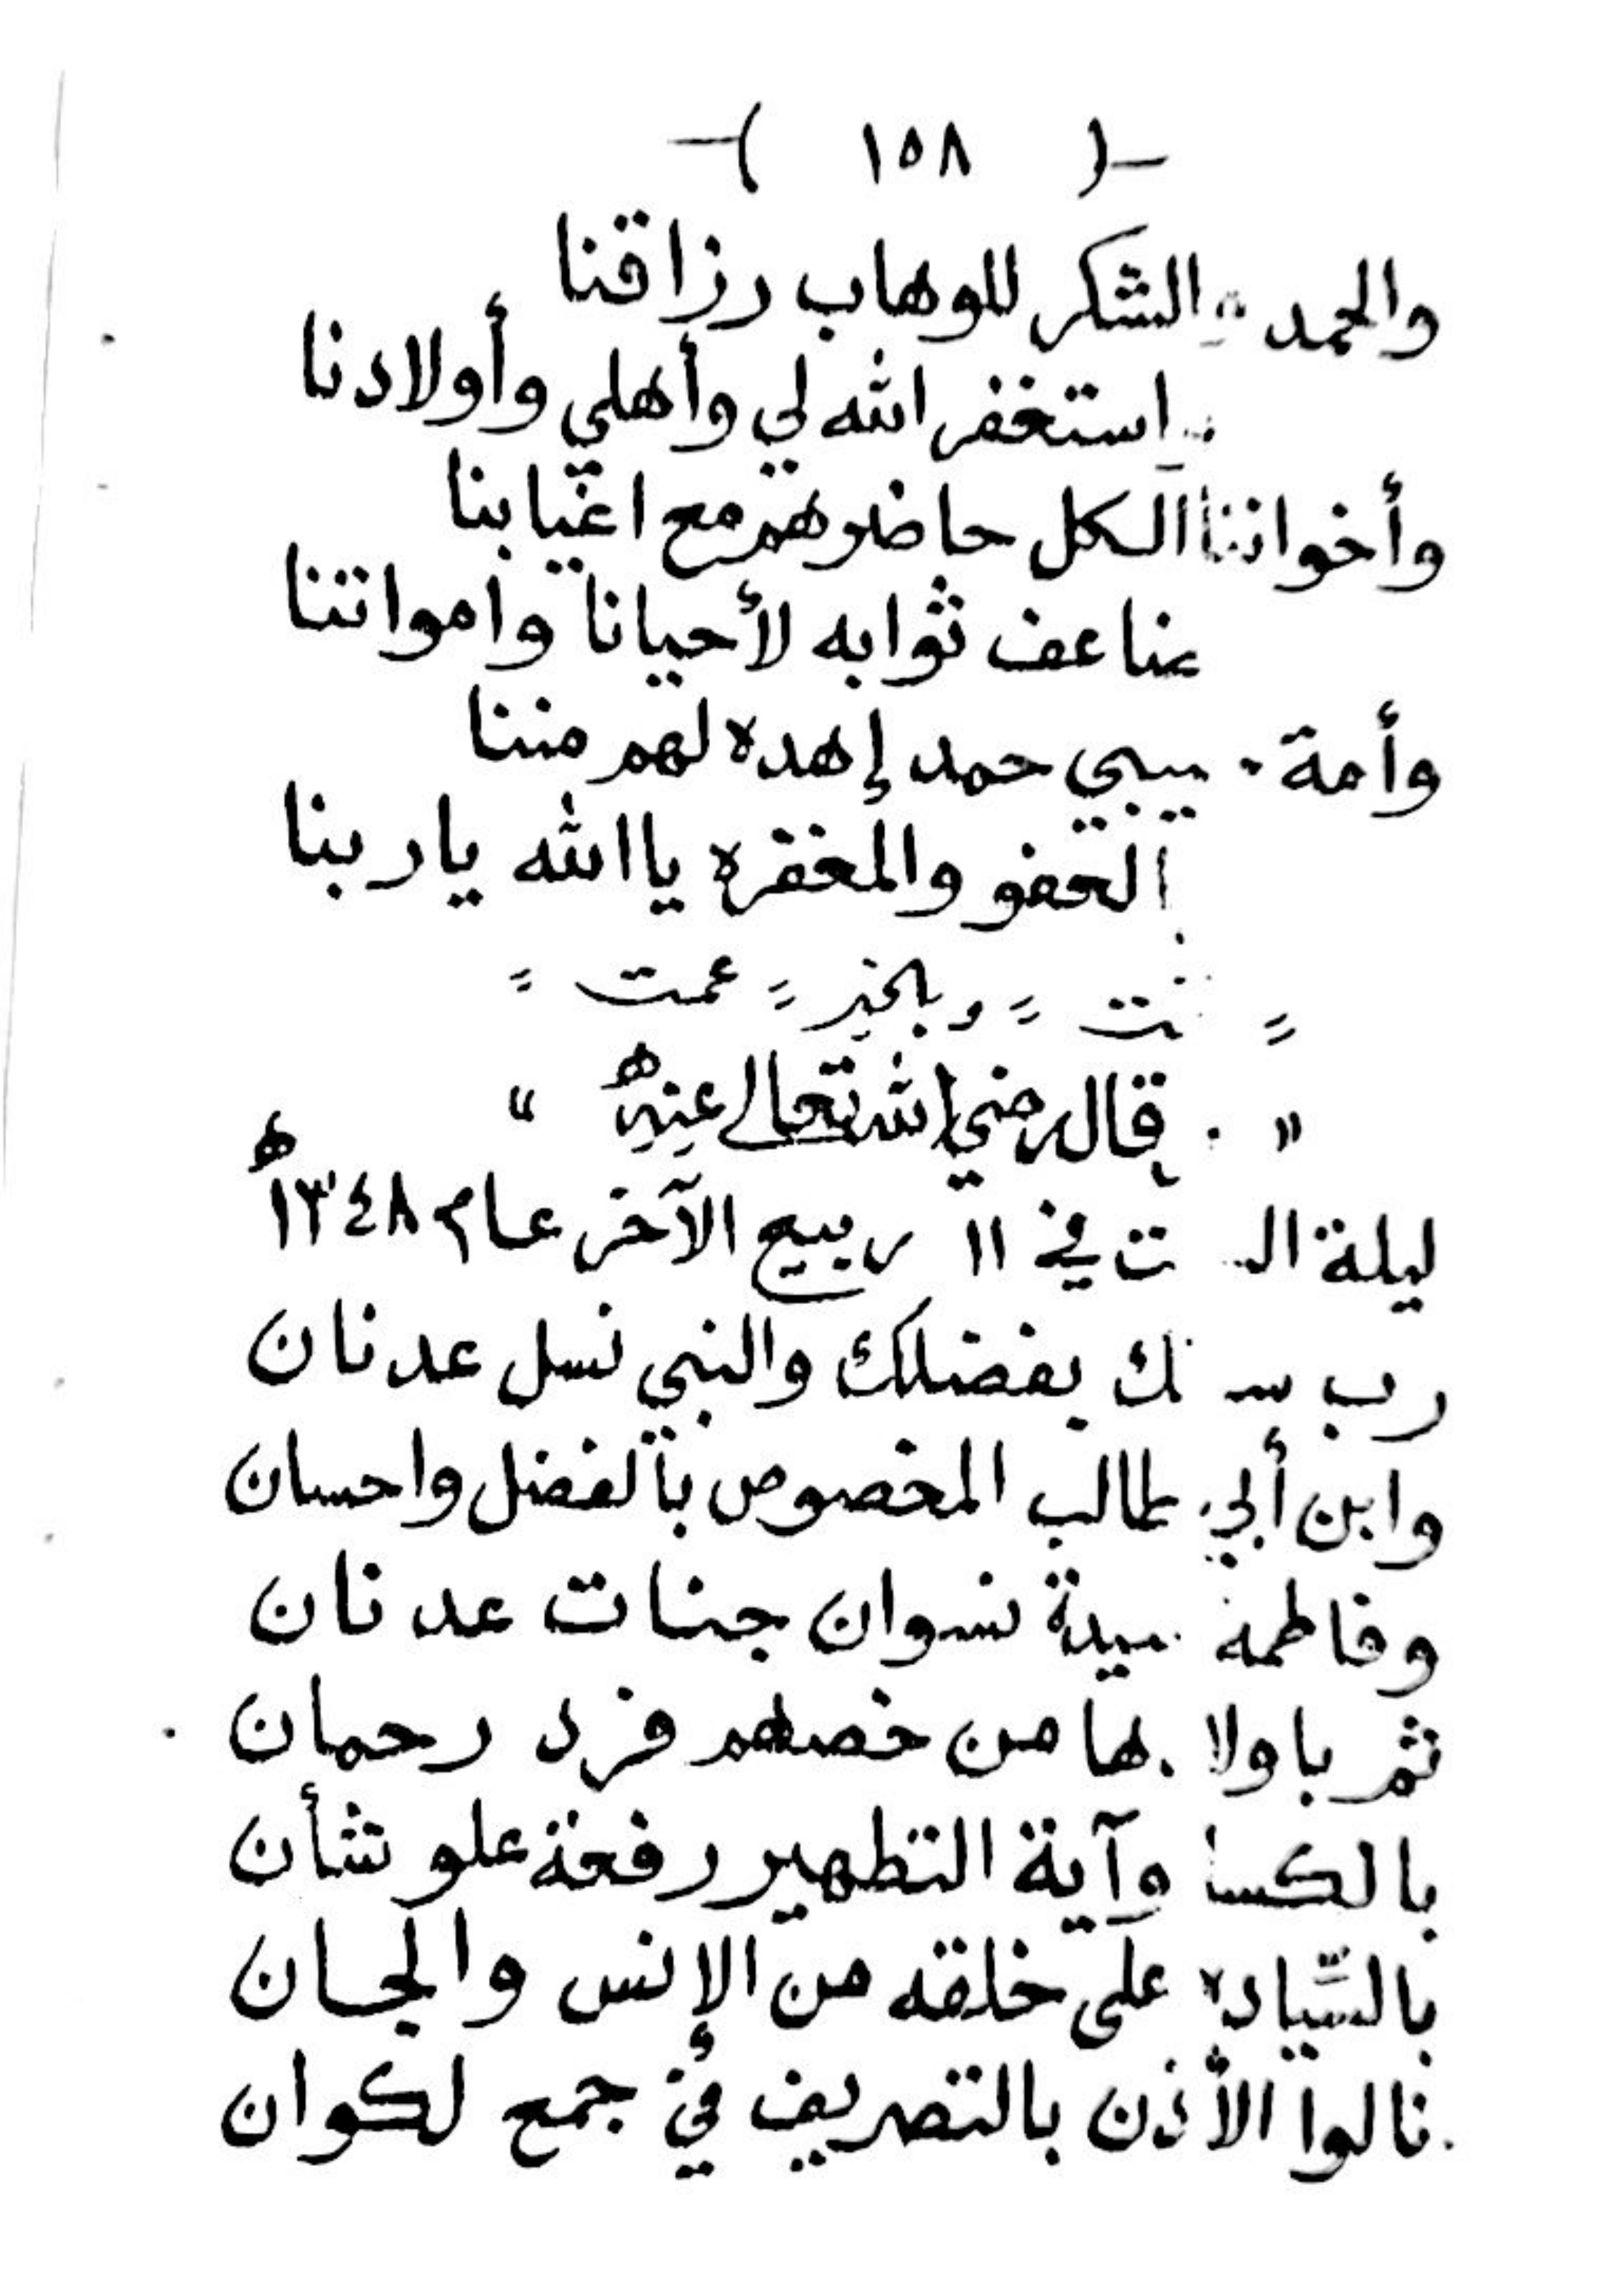 -( ١٥٨ )-
والحمد والشكر للوهاب رزاقنا
استغفر الله لي وأهلي وأولادنا
وأخواننا الكل حاضرهم مع اغيابنا
ضاعف ثوابه لأحيانا وامواتنا
وأمة حبيبي حمد إهده لهم مننا
العفو والمغفره يا الله يا ربنا
= تمت = وبالخير = عمت =
" قال رضي الله تعالى عنه "
ليلة السبت في ١١ ربيع الآخر عام ١٣٤٨ه
رب سالك بفضلك والنبي نسل عدنان
وابن أبي طالب المخصوص بالفضل واحسان
وفاطمة سيدة نسوان جنات عدنان
ثم باولادها من خصهم فرد رحمان
بالكسا وآية التطهير رفعة علو شأن
بالسياده على خلقه من الإنس والجان
نالوا الأذن بالتصريف في جمع لكوان